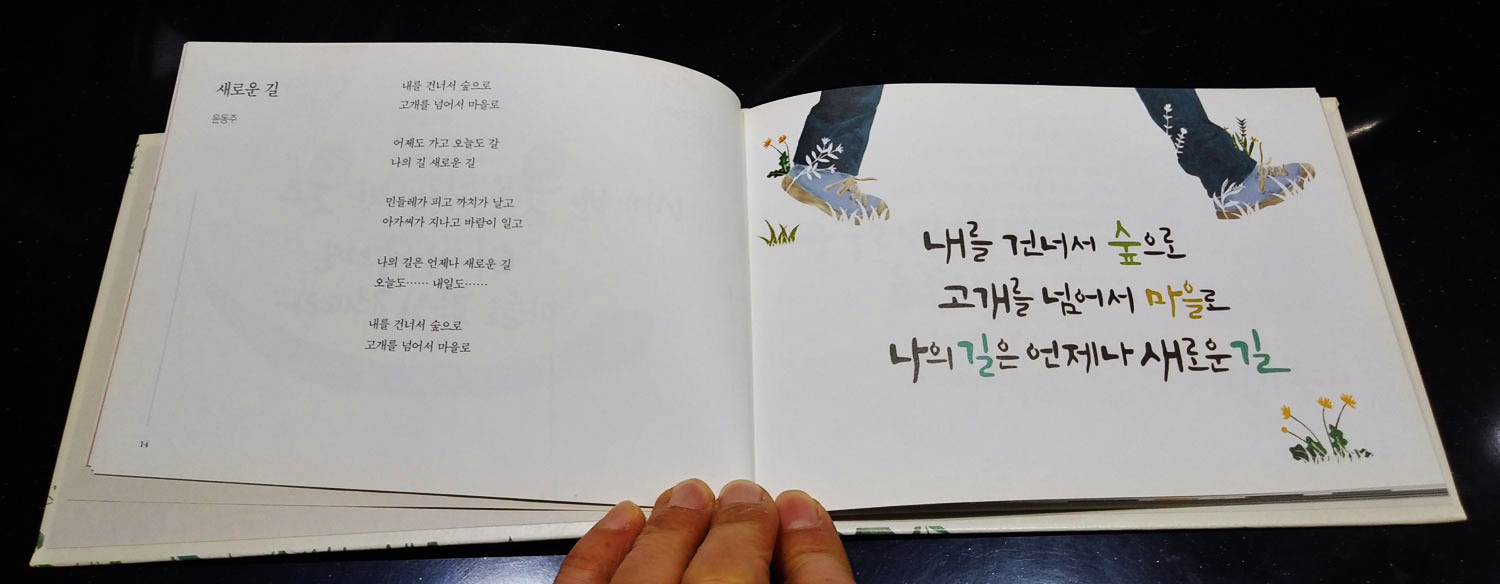 새로운 길
윤동주
내를 건너서 숲으로
고개를 넘어서 마을로
어제도 가고 오늘도 갈
나의 길 새로운 길
민들레가 피고 까치가 날고
아가씨가 지나고 바람이 일고
나의 길은 언제나 새로운 길
오늘도…… 내일도……
내를 건너서 숲으로
고개를 넘어서 마을로
14
내를 건너서 숲으로
고개를 넘어서 마을로
나의 길은 언제나 새로운 길